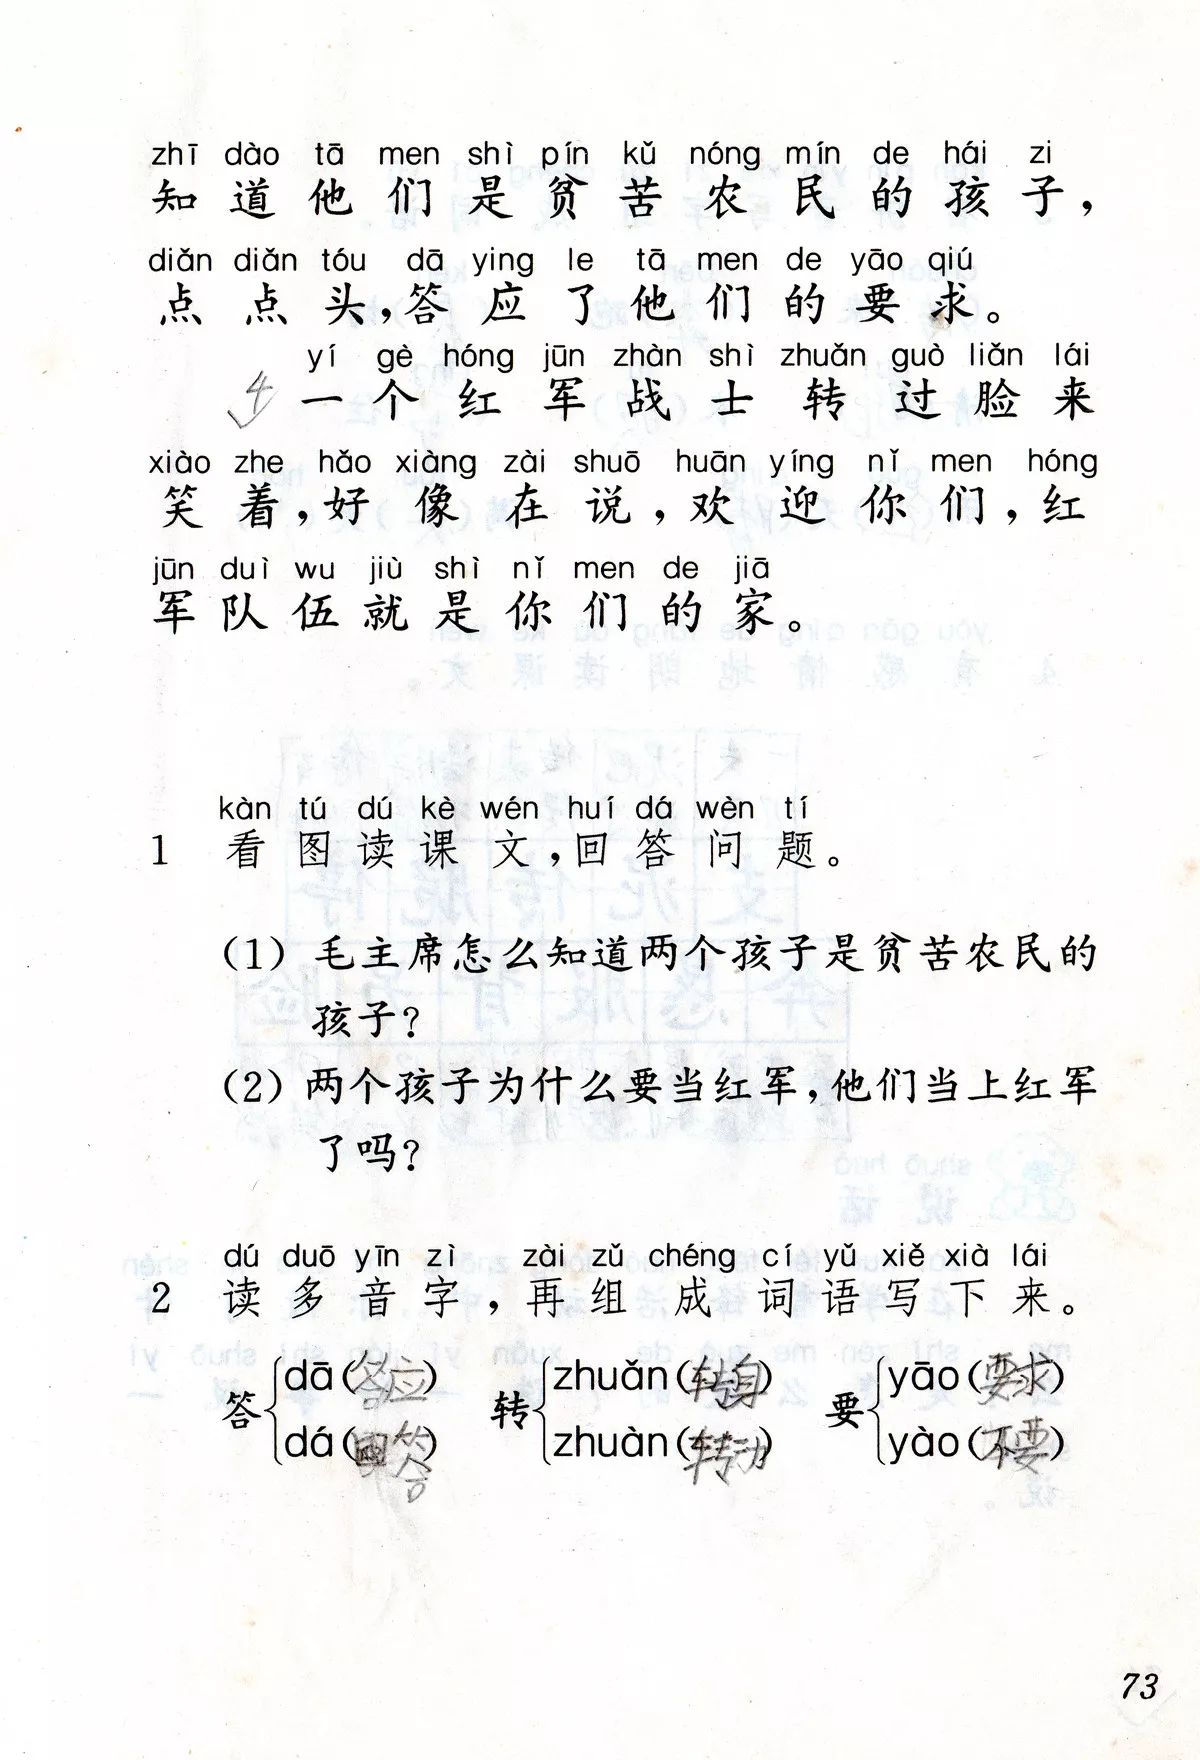 zhī dào tā men shì pín kǔ nóng mín de hái zi
知道他们是贫苦农民的孩子，
diǎn diǎn tóu dā ying le tā men de yāo qiú
点点头，答应了他们的要求。
yí gè hóng jūn zhàn shì zhuǎn guò liǎn lái
4 一个红军战士转过脸来
xiào zhe hǎo xiàng zài shuō huān yíng nǐ men hóng
笑着，好像在说，欢迎你们，红
jūn duì wu jiù shì nǐ men de jiā
军队伍就是你们的家。
kàn tú dú kè wén huí dá wèn tí
1 看图读课文，回答问题。
(1) 毛主席怎么知道两个孩子是贫苦农民的
孩子？
(2) 两个孩子为什么要当红军，他们当上红军
了吗？
dú duō yīn zì zài zǔ chéng cí yǔ xiě xià lái
2 读多音字，再组成词语写下来。
答 dā(答应) dá(回答) 转 zhuǎn(转身) zhuàn(转动) 要 yāo(要求) yào(不要)
73